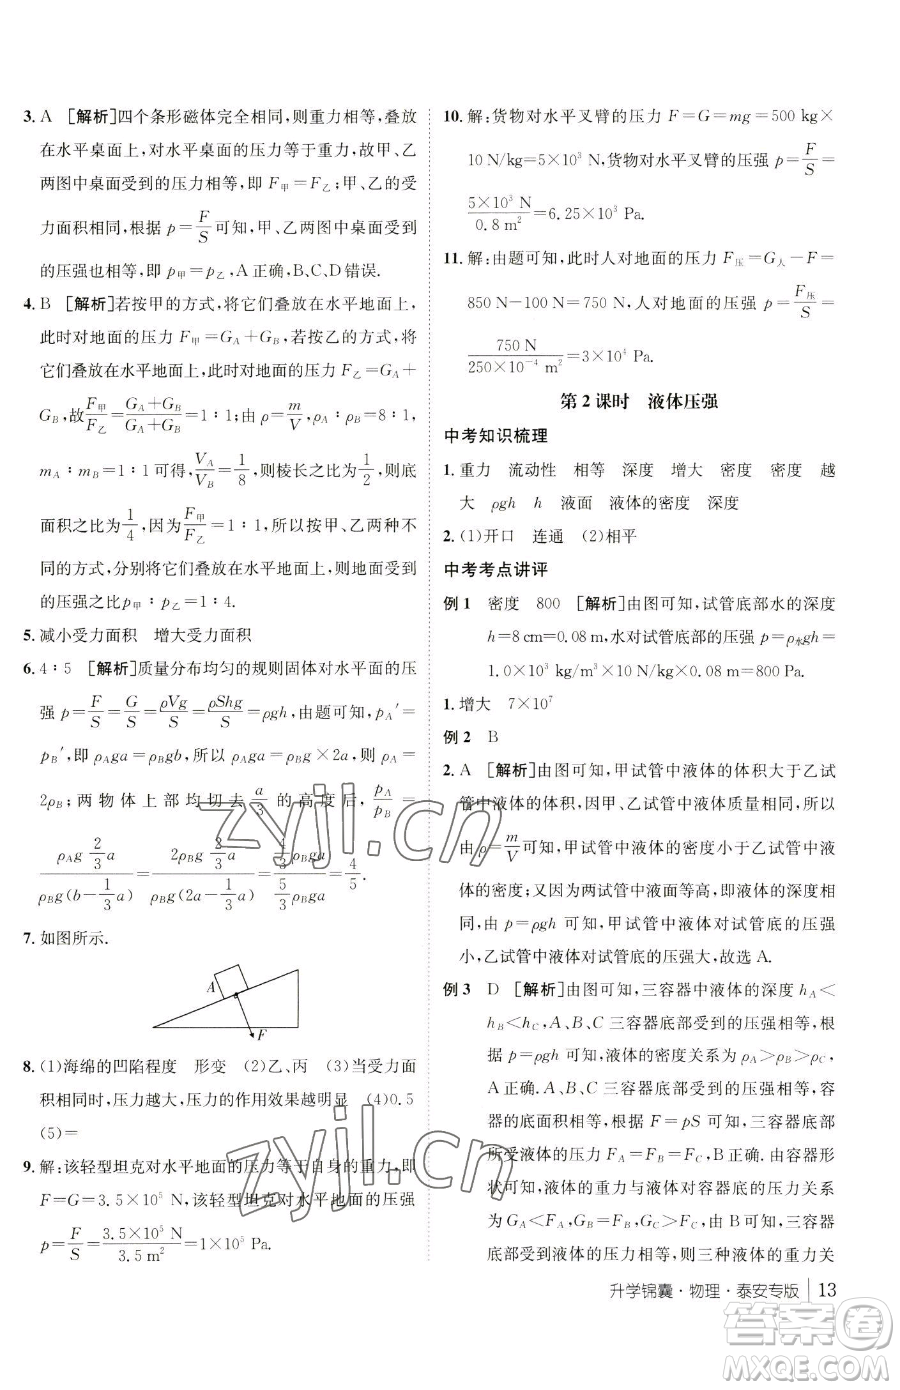 3. A [解析]四个条形磁体完全相同,则重力相等,叠放
在水平桌面上,对水平桌面的压力等于重力,故甲、乙
两图中桌面受到的压力相等,即 F甲=F乙;甲、乙的受
力面积相同,根据 p=F/S 可知,甲、乙两图中桌面受到
的压强也相等,即 p甲=p乙,A正确,B、C、D错误.
4. B [解析]若按甲的方式,将它们叠放在水平地面上,
此时对地面的压力 F甲=GA+GB;若按乙的方式,将
它们叠放在水平地面上,此时对地面的压力 F乙=GA+
GB,故F甲/F乙=(GA+GB)/(GA+GB)=1∶1;由ρ=m/V,ρA∶ρB=8∶1,
mA∶mB=1∶1可得,VA/VB=1/8,则棱长之比为1/2,底
面积之比为1/4,F甲/F乙=1∶1,所以按甲、乙两种不
同的方式,分别将它们叠放在水平地面上,地面受到
的压强之比p甲∶p乙=1∶4.
5. 减小受力面积 增大受力面积
6. 4∶5 [解析]质量分布均匀的规则固体对水平面的压
强 p=F/S=G/S=ρVg/S=ρShg/S=ρgh,由题可知,pA′=
pB′,即 ρAga=ρBgb,所以 ρAga=ρBg×2a,则 ρA=
2ρB;两物体上部均切去a/3的高度后,pA/pB=
(ρAg 2/3 a)/(ρBg(b−1/3 a))=(2ρBg 2/3 a)/(ρBg(2a−1/3 a))=(4/3 ρBga)/(5/3 ρBga)=4/5.
7. 如图所示.
A
F
8. (1)海绵的凹陷程度 形变 (2)乙、丙 (3)当受力面
积相同时,压力越大,压力的作用效果越明显 (4)0.5
(5)=
9. 解:该轻型坦克对水平地面的压力等于自身的重力,即
F=G=3.5×10⁵ N,该轻型坦克对水平地面的压强
p=F/S=3.5×10⁵ N/3.5 m²=1×10⁵ Pa.
10. 解:货物对水平叉臂的压力 F=G=mg=500 kg×
10 N/kg=5×10³ N,货物对水平叉臂的压强 p=F/S=
5×10³ N/0.8 m²=6.25×10³ Pa.
11. 解:由题可知,此时人对地面的压力 F压=G人−F=
850 N−100 N=750 N,人对地面的压强 p=F压/S=
750 N/250×10⁻⁴ m²=3×10⁴ Pa.
第2课时 液体压强
中考知识梳理
1. 重力 流动性 相等 深度 增大 密度 密度 越
大 ρgh h 液面 液体的密度 深度
2. (1)开口 连通 (2)相平
中考考点讲评
例1 密度 800 [解析]由图可知,试管底部水的深度
h=8 cm=0.08 m,水对试管底部的压强 p=ρ水gh=
1.0×10³ kg/m³×10 N/kg×0.08 m=800 Pa.
1. 增大 7×10⁷
例2 B
2. A [解析]由图可知,甲试管中液体的体积大于乙试
管中液体的体积,因甲、乙试管中液体质量相同,所以
由 ρ=m/V可知,甲试管中液体的密度小于乙试管中液
体的密度;又因为两试管中液面等高,即液体的深度相
同,由 p=ρgh 可知,甲试管中液体对试管底的压强
小,乙试管中液体对试管底的压强大,故选A.
例3 D [解析]由图可知,三容器中液体的深度 hA<
hB<hC,A、B、C 三容器底部受到的压强相等,根据
p=ρgh 可知,三容器中液体的密度关系为 ρA>ρB>ρC,
A正确.由于 A、B、C 三容器底部受到的压强相等,容
器的底面积相等,根据 F=pS 可知,三容器底部
所受液体的压力 FA=FB=FC,而三容器中液体所
受的重力与容器底部所受液体压力的大小关系分别
为 GA<FA,GB=FB,GC>FC,由 B可知,三容器
底部受到液体的压力相等,则三种液体的重力关
升学锦囊·物理·泰安专版 13
zyjl.cn
zyjl.cn
答案圈
MXQE.COM